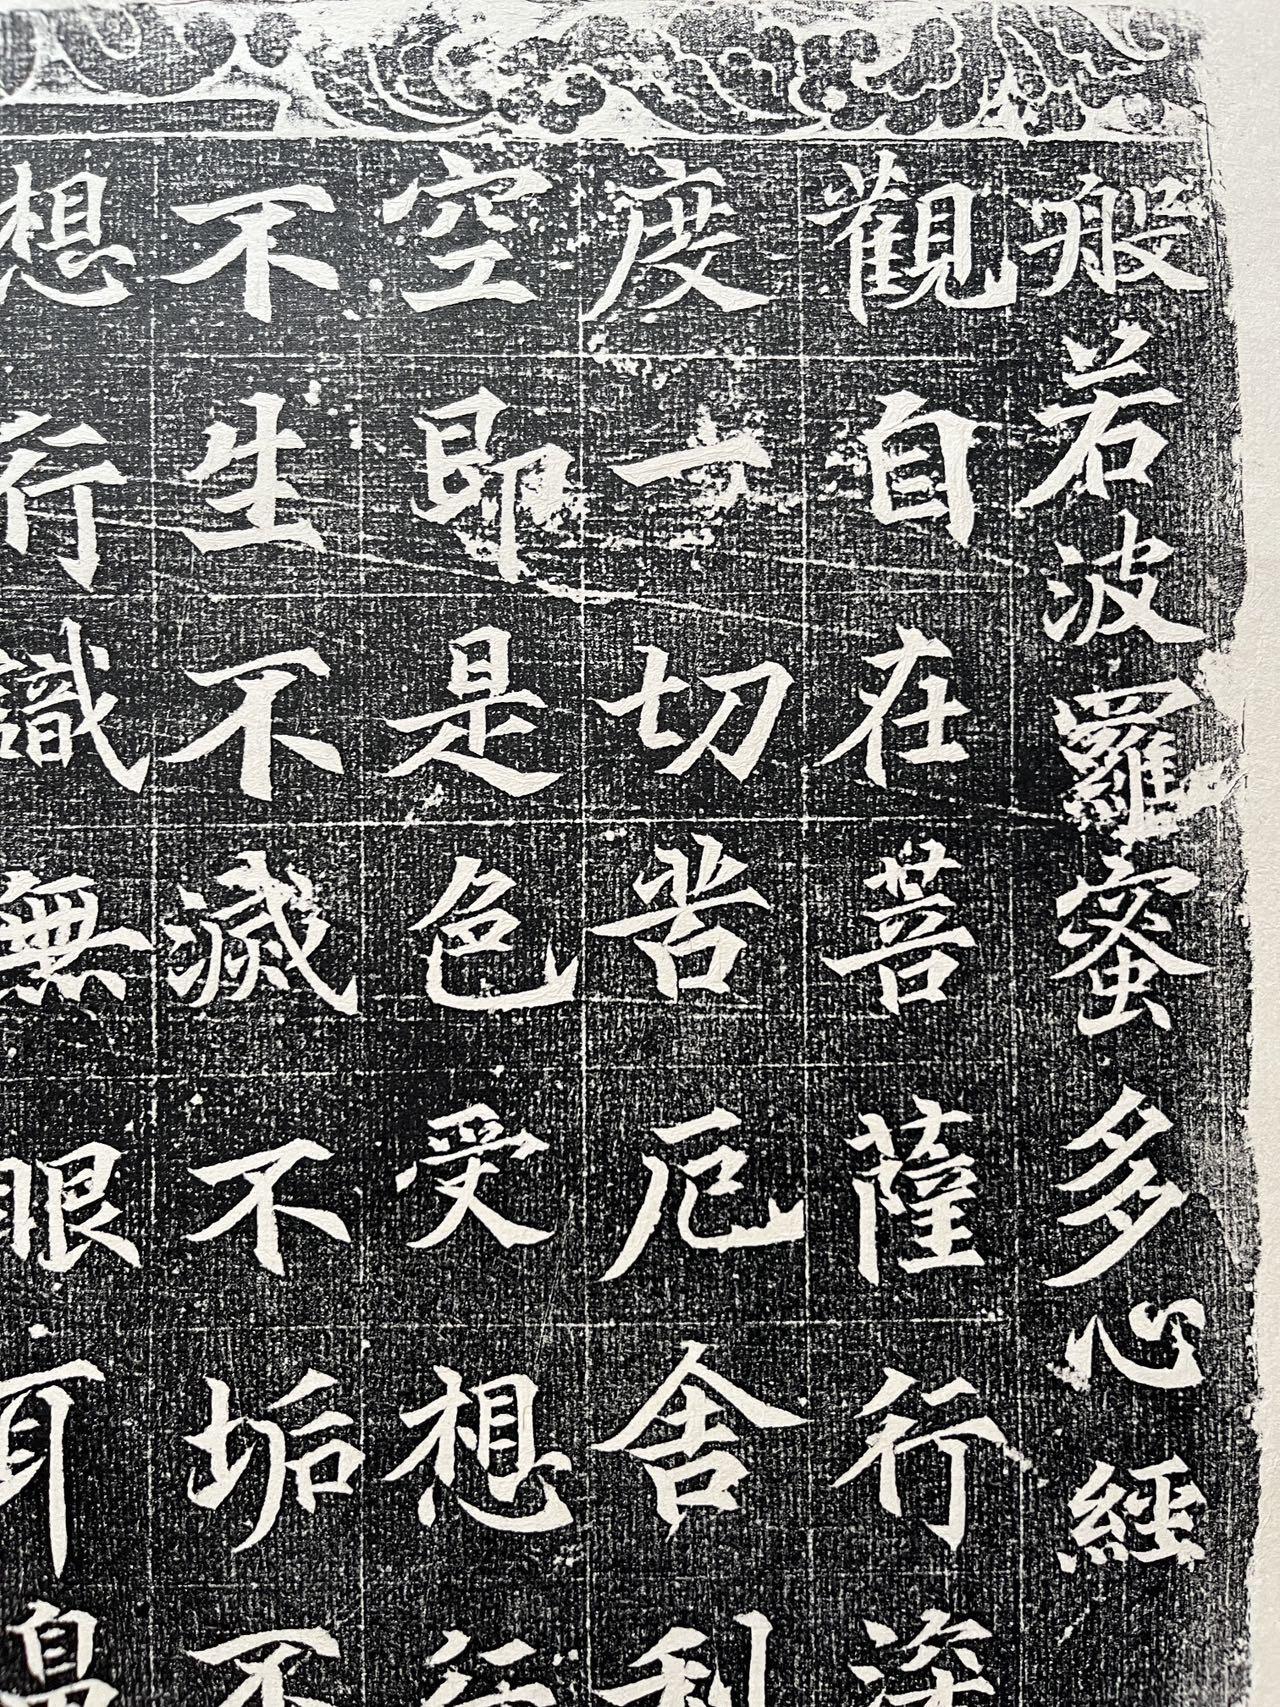 般若波羅蜜多心經
觀自在菩薩行深
度一切苦厄舍利
空即是色受想行
不生不滅不垢不
想行識無眼耳鼻